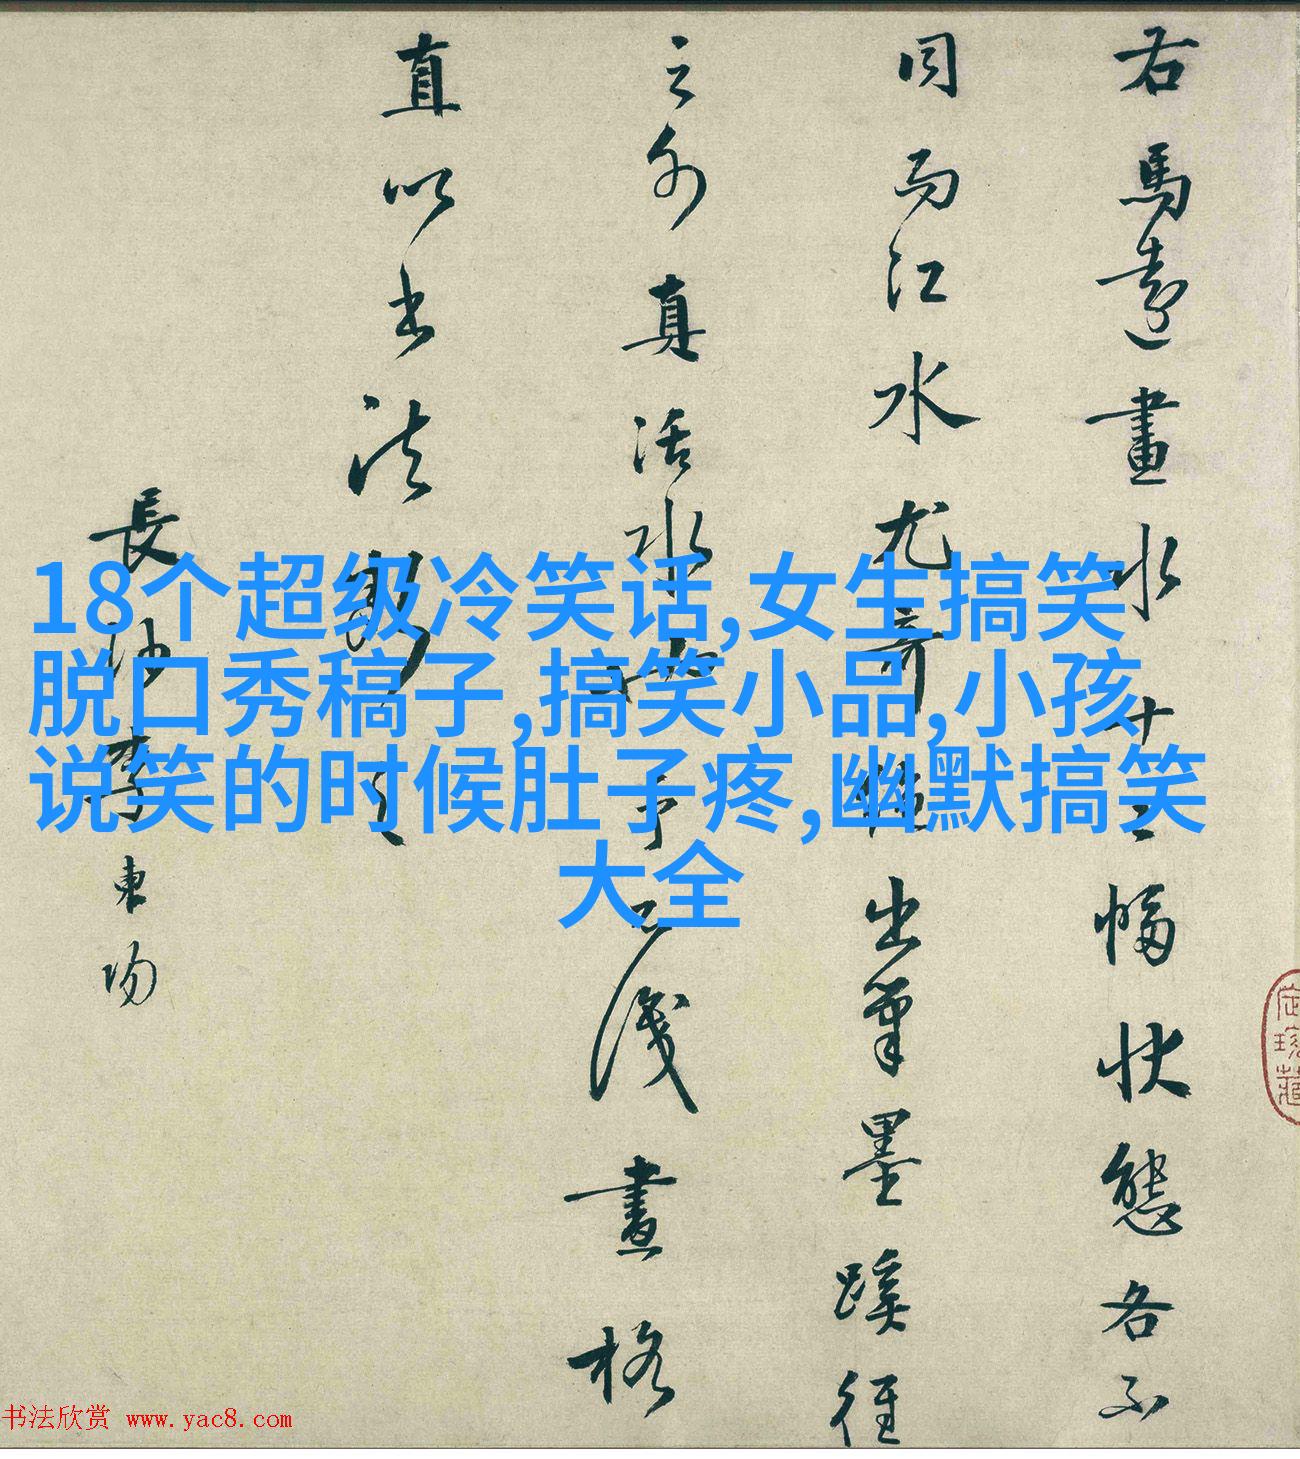 右馬遠畫水十二幅狀態各不
同而江水尤奇絶出筆墨蹊徑
之外真活水也予不識畫格
直以書法觀之
長沙李東陽
18个超级冷笑话,女生搞笑
脱口秀稿子,搞笑小品,小孩
说笑的时候肚子疼,幽默搞笑
大全
书法欣赏 www.yac8.com